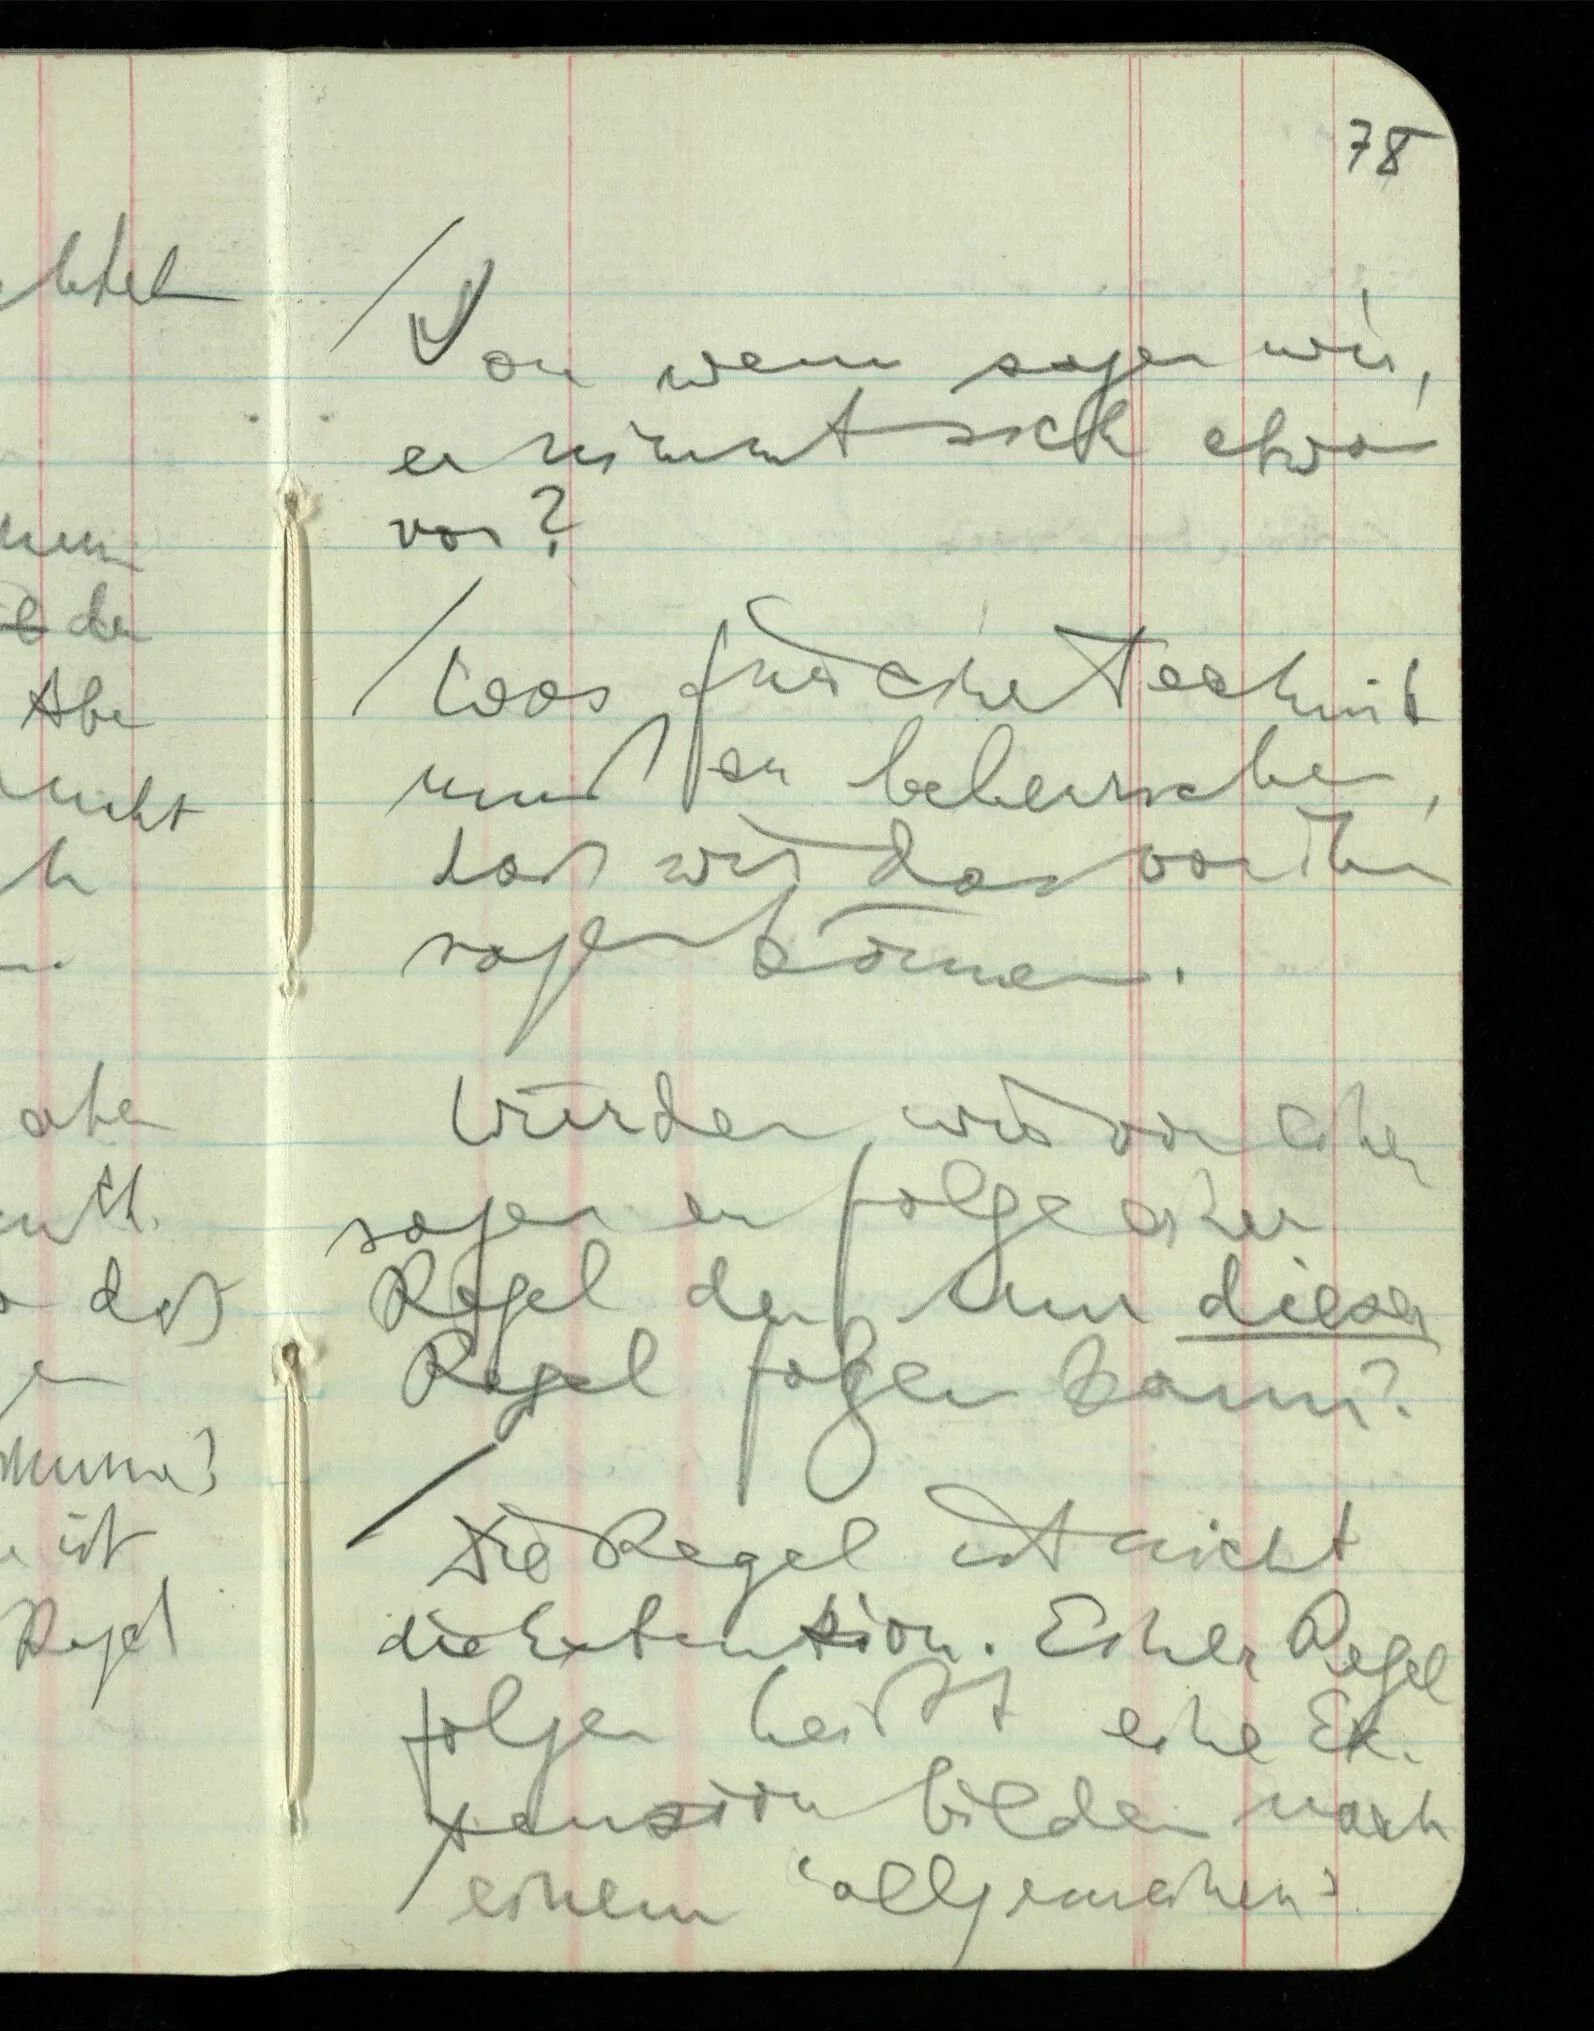 78
/ Von wem sagen wir,
er nimmt sich etwas
vor?
/ Was für eine Technik
muß er beherrschen,
daß wir das von ihm
sagen können.
Würden wir von einem
sagen er folge einer
Regel der nur dieser
Regel folgen kann?
/ Die Regel ist nicht
die Extension. Einer Regel
folgen heißt eine Ex-
tension bilden nach
einem ‘allgemeinen’
nicht
aber
daß
ist
Regel